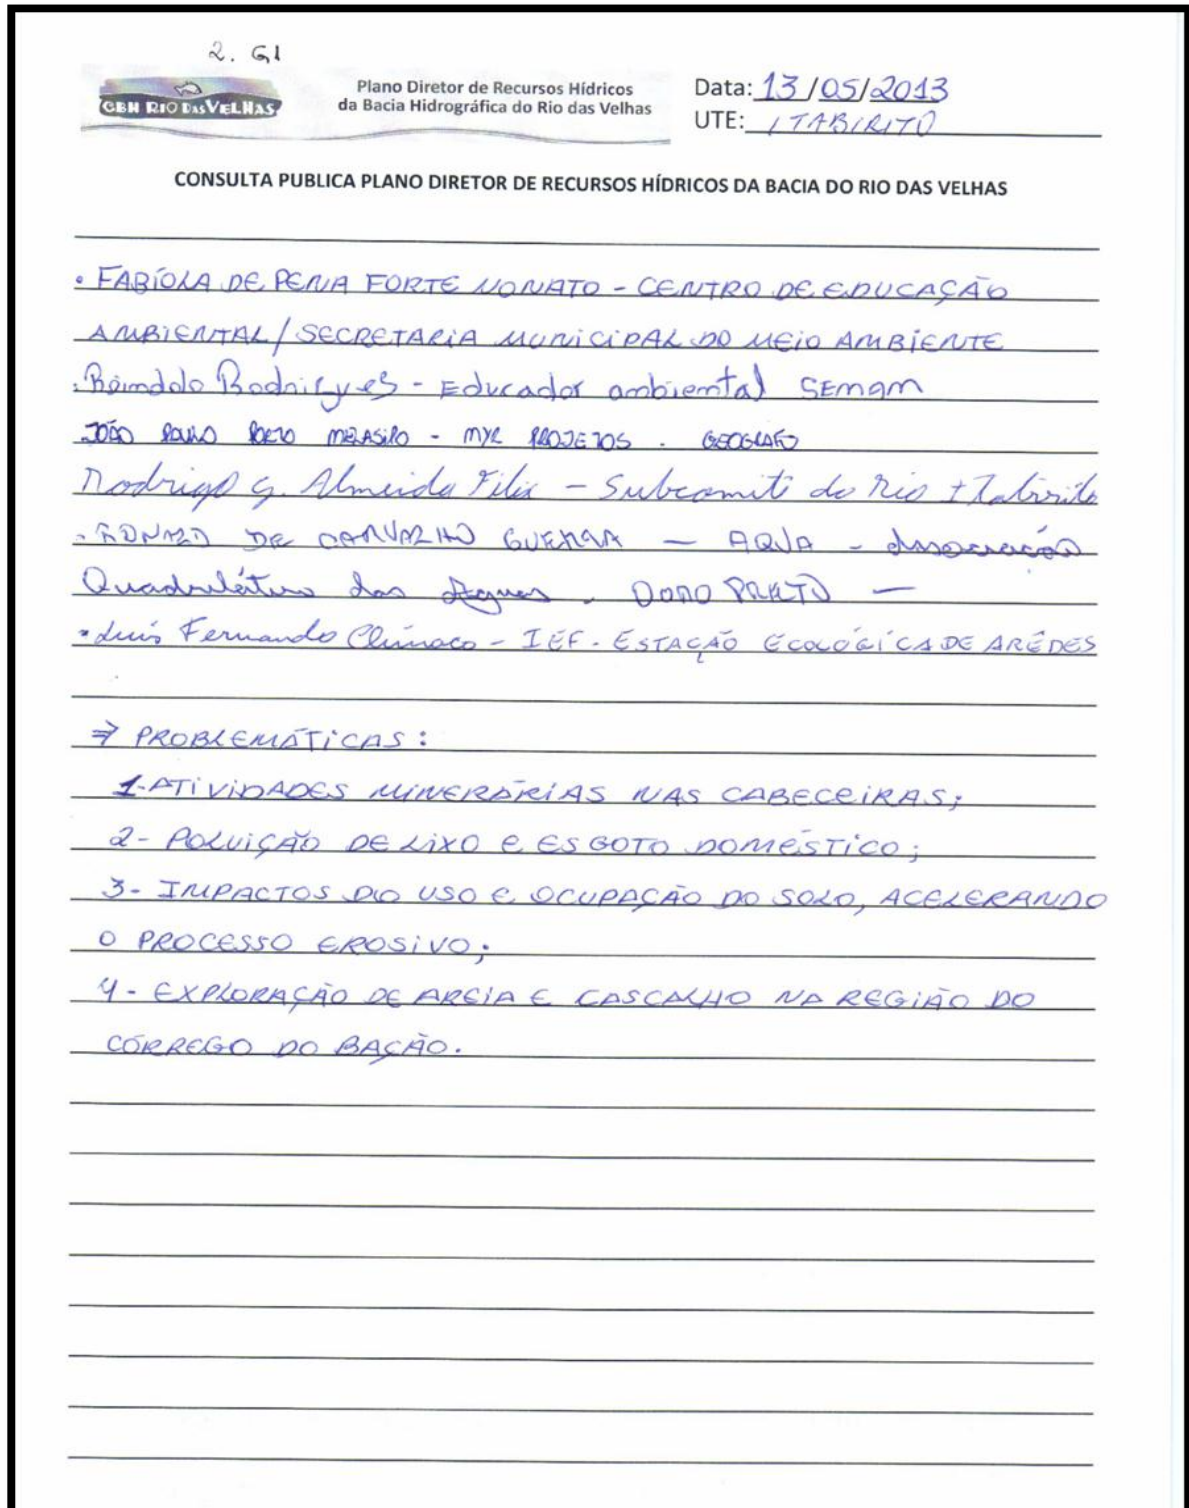 2. G1
CBH RIO DAS VELHAS
Plano Diretor de Recursos Hídricos
da Bacia Hidrográfica do Rio das Velhas
Data: 13/05/2013
UTE: ITABIRITO
CONSULTA PUBLICA PLANO DIRETOR DE RECURSOS HÍDRICOS DA BACIA DO RIO DAS VELHAS
• FABÍOLA DE PENA FORTE NONATO - CENTRO DE EDUCAÇÃO
AMBIENTAL/SECRETARIA MUNICIPAL DO MEIO AMBIENTE
Rodrigues - Educador ambiental SEMAM
JOÃO PAULO PORTO - MYR PROJETOS . GEOGRAFO
Rodrigo G. Almeida - Subcomitê do Rio Itabirito
- DE CARVALHO GUERRA — AQUA - Associação
Quadrilátero das Águas . OURO PRETO —
• Luís Fernando Clímaco - IEF - ESTAÇÃO ECOLÓGICA DE ARÊDES
⇒ PROBLEMÁTICAS:
1- ATIVIDADES MINERÁRIAS NAS CABECEIRAS;
2- POLUIÇÃO DE LIXO E ESGOTO DOMÉSTICO;
3- IMPACTOS DO USO E OCUPAÇÃO DO SOLO, ACELERANDO
O PROCESSO EROSIVO;
4- EXPLORAÇÃO DE AREIA E CASCALHO NA REGIÃO DO
CÓRREGO DO BAÇÃO.